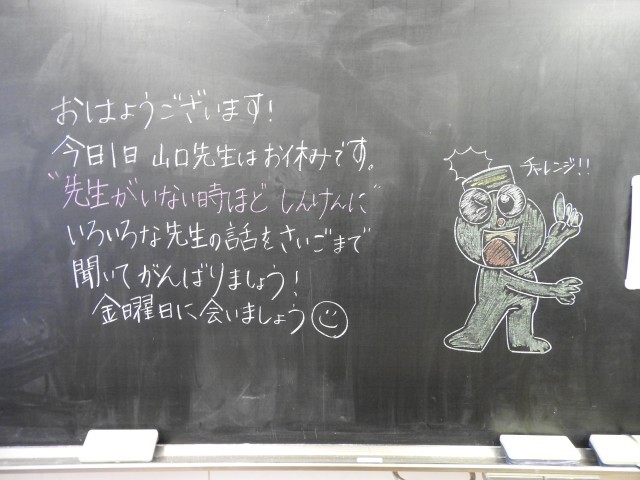 おはようございます!
今日1日 山口先生はお休みです。
"先生がいない時ほど しんけんに"
いろいろな先生の話をさいごまで
聞いてがんばりましょう!
金曜日に会いましょう
チャレンジ!!